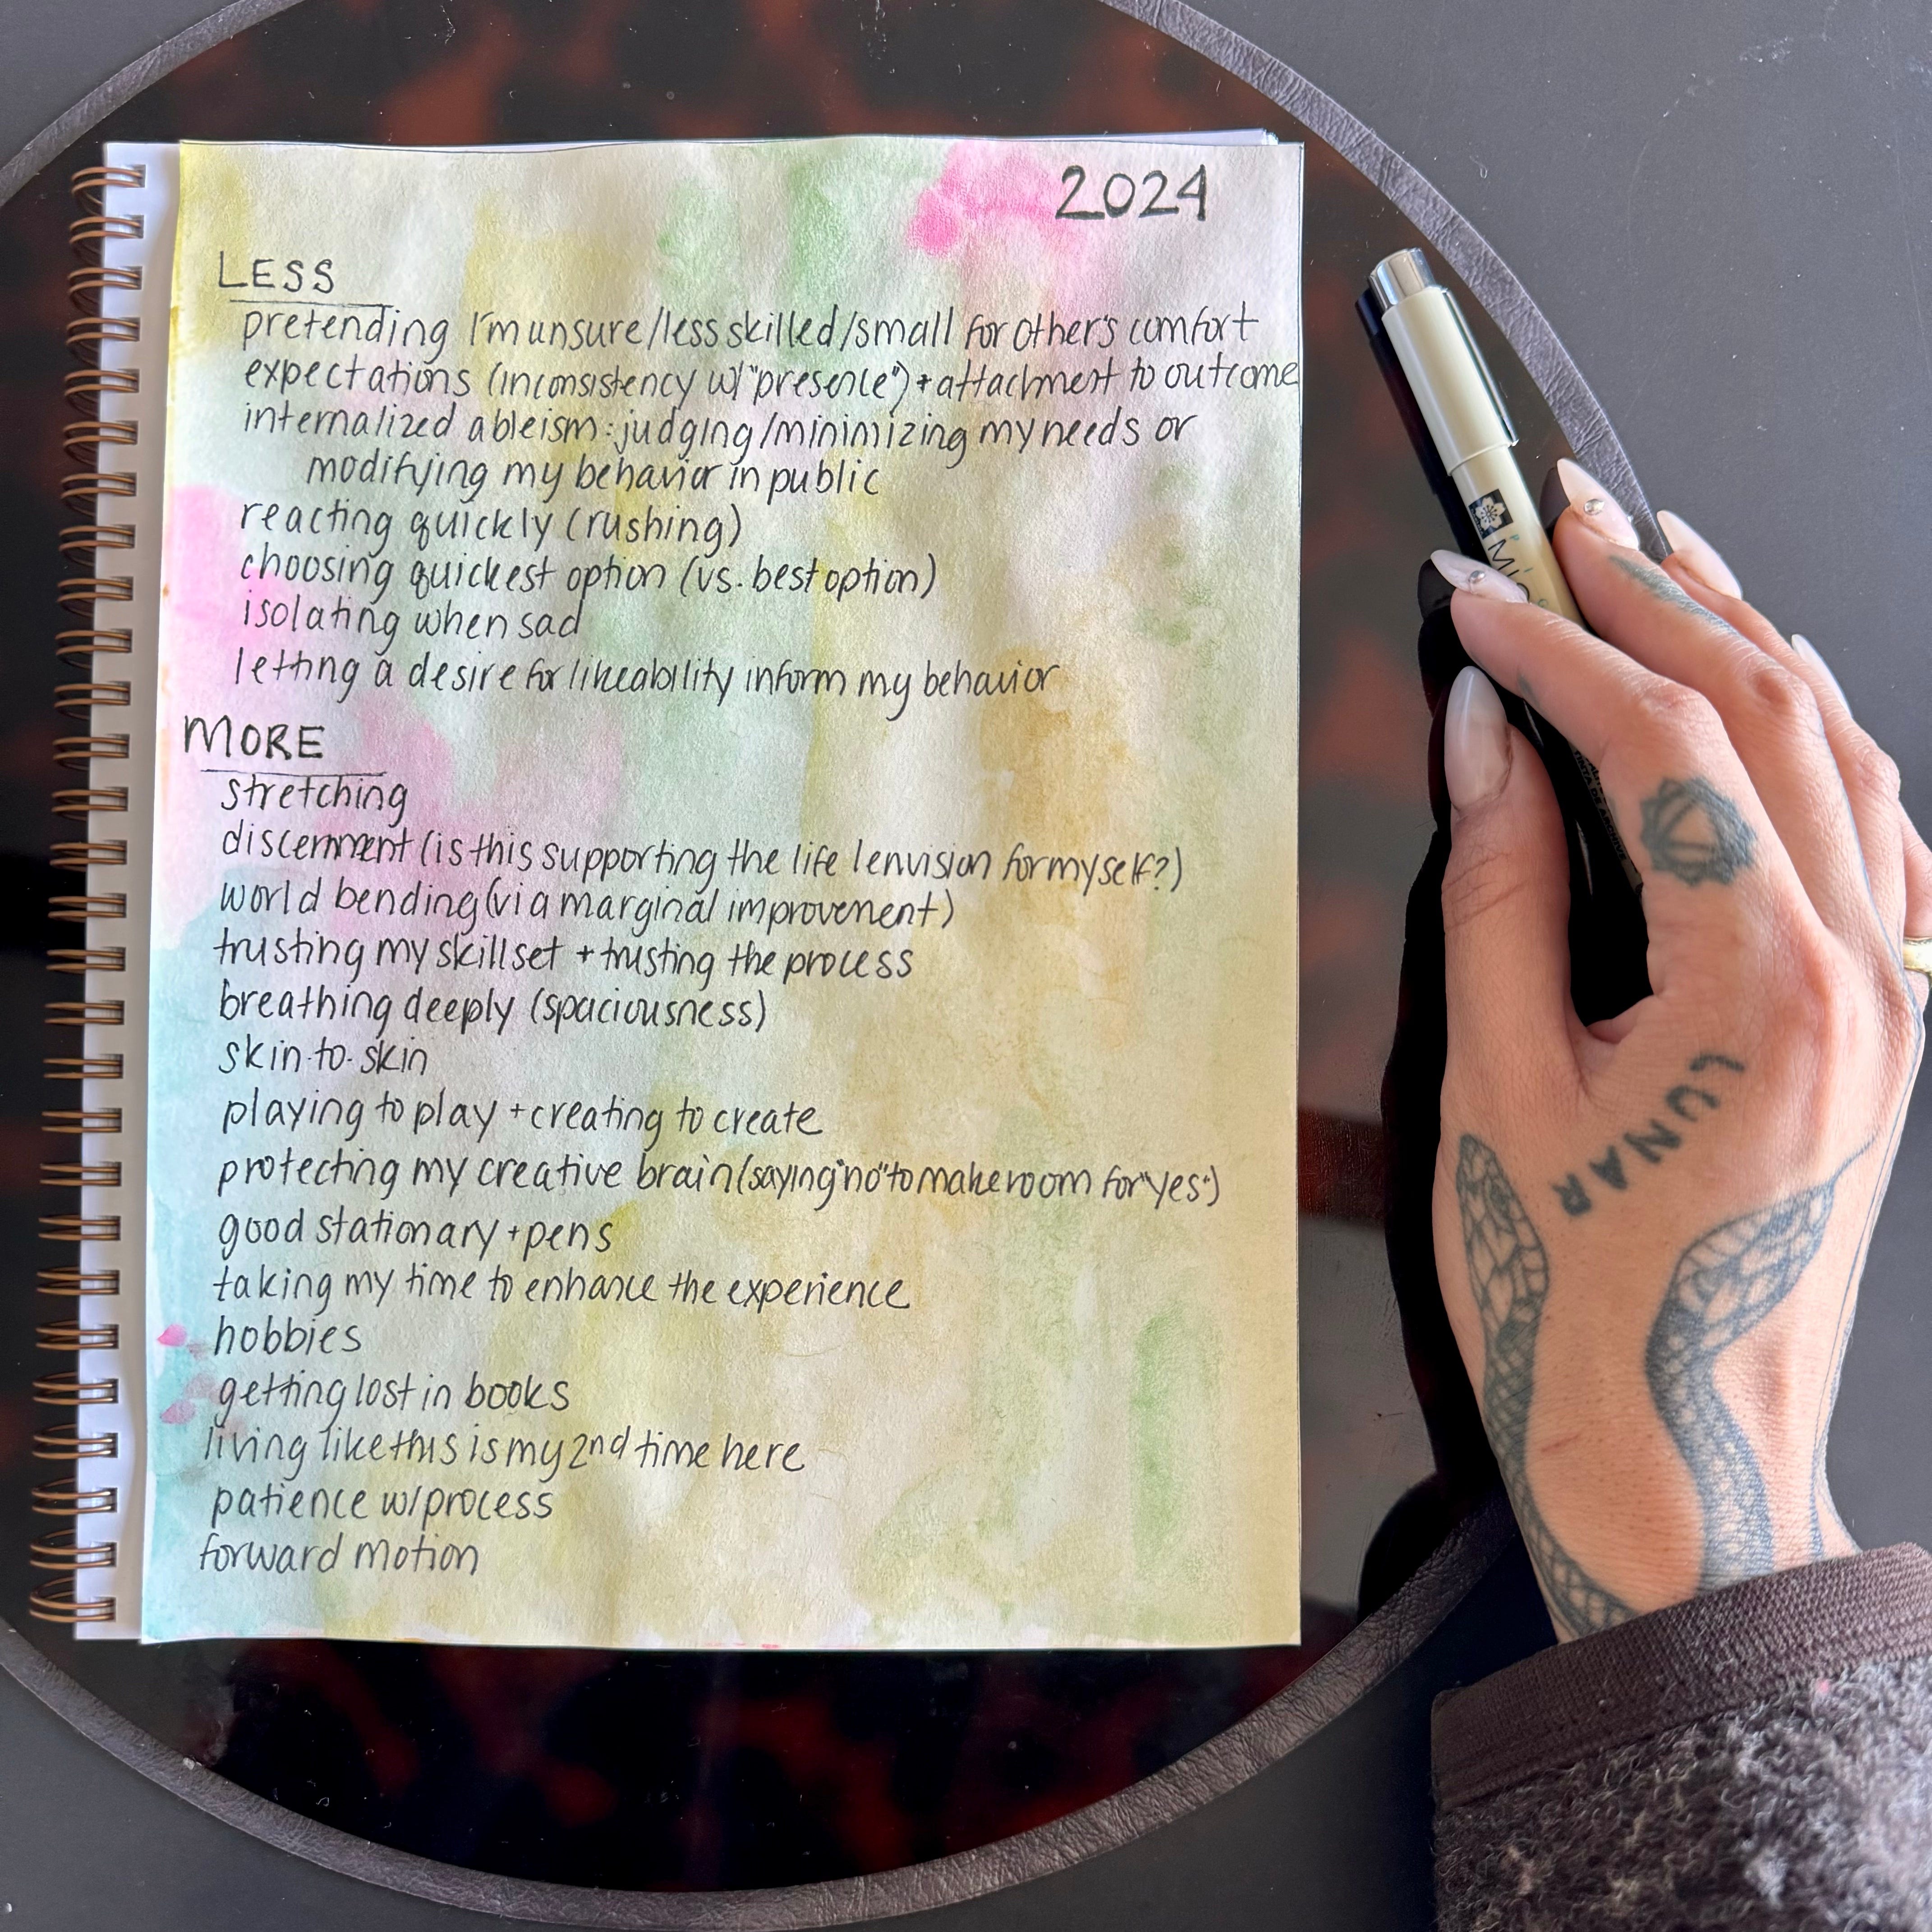 2024
LESS
pretending I'm unsure/less skilled/small for other's comfort
expectations (inconsistency w/ "presence") + attachment to outcome
internalized ableism: judging/minimizing my needs or
modifying my behavior in public
reacting quickly (rushing)
choosing quickest option (vs. best option)
isolating when sad
letting a desire for likeability inform my behavior
MORE
stretching
discernment (is this supporting the life I envision for myself?)
world bending (via marginal improvement)
trusting my skillset + trusting the process
breathing deeply (spaciousness)
skin-to-skin
playing to play + creating to create
protecting my creative brain (saying "no" to make room for "yes")
good stationary + pens
taking my time to enhance the experience
hobbies
getting lost in books
living like this is my 2nd time here
patience w/ process
forward motion
LUNAR